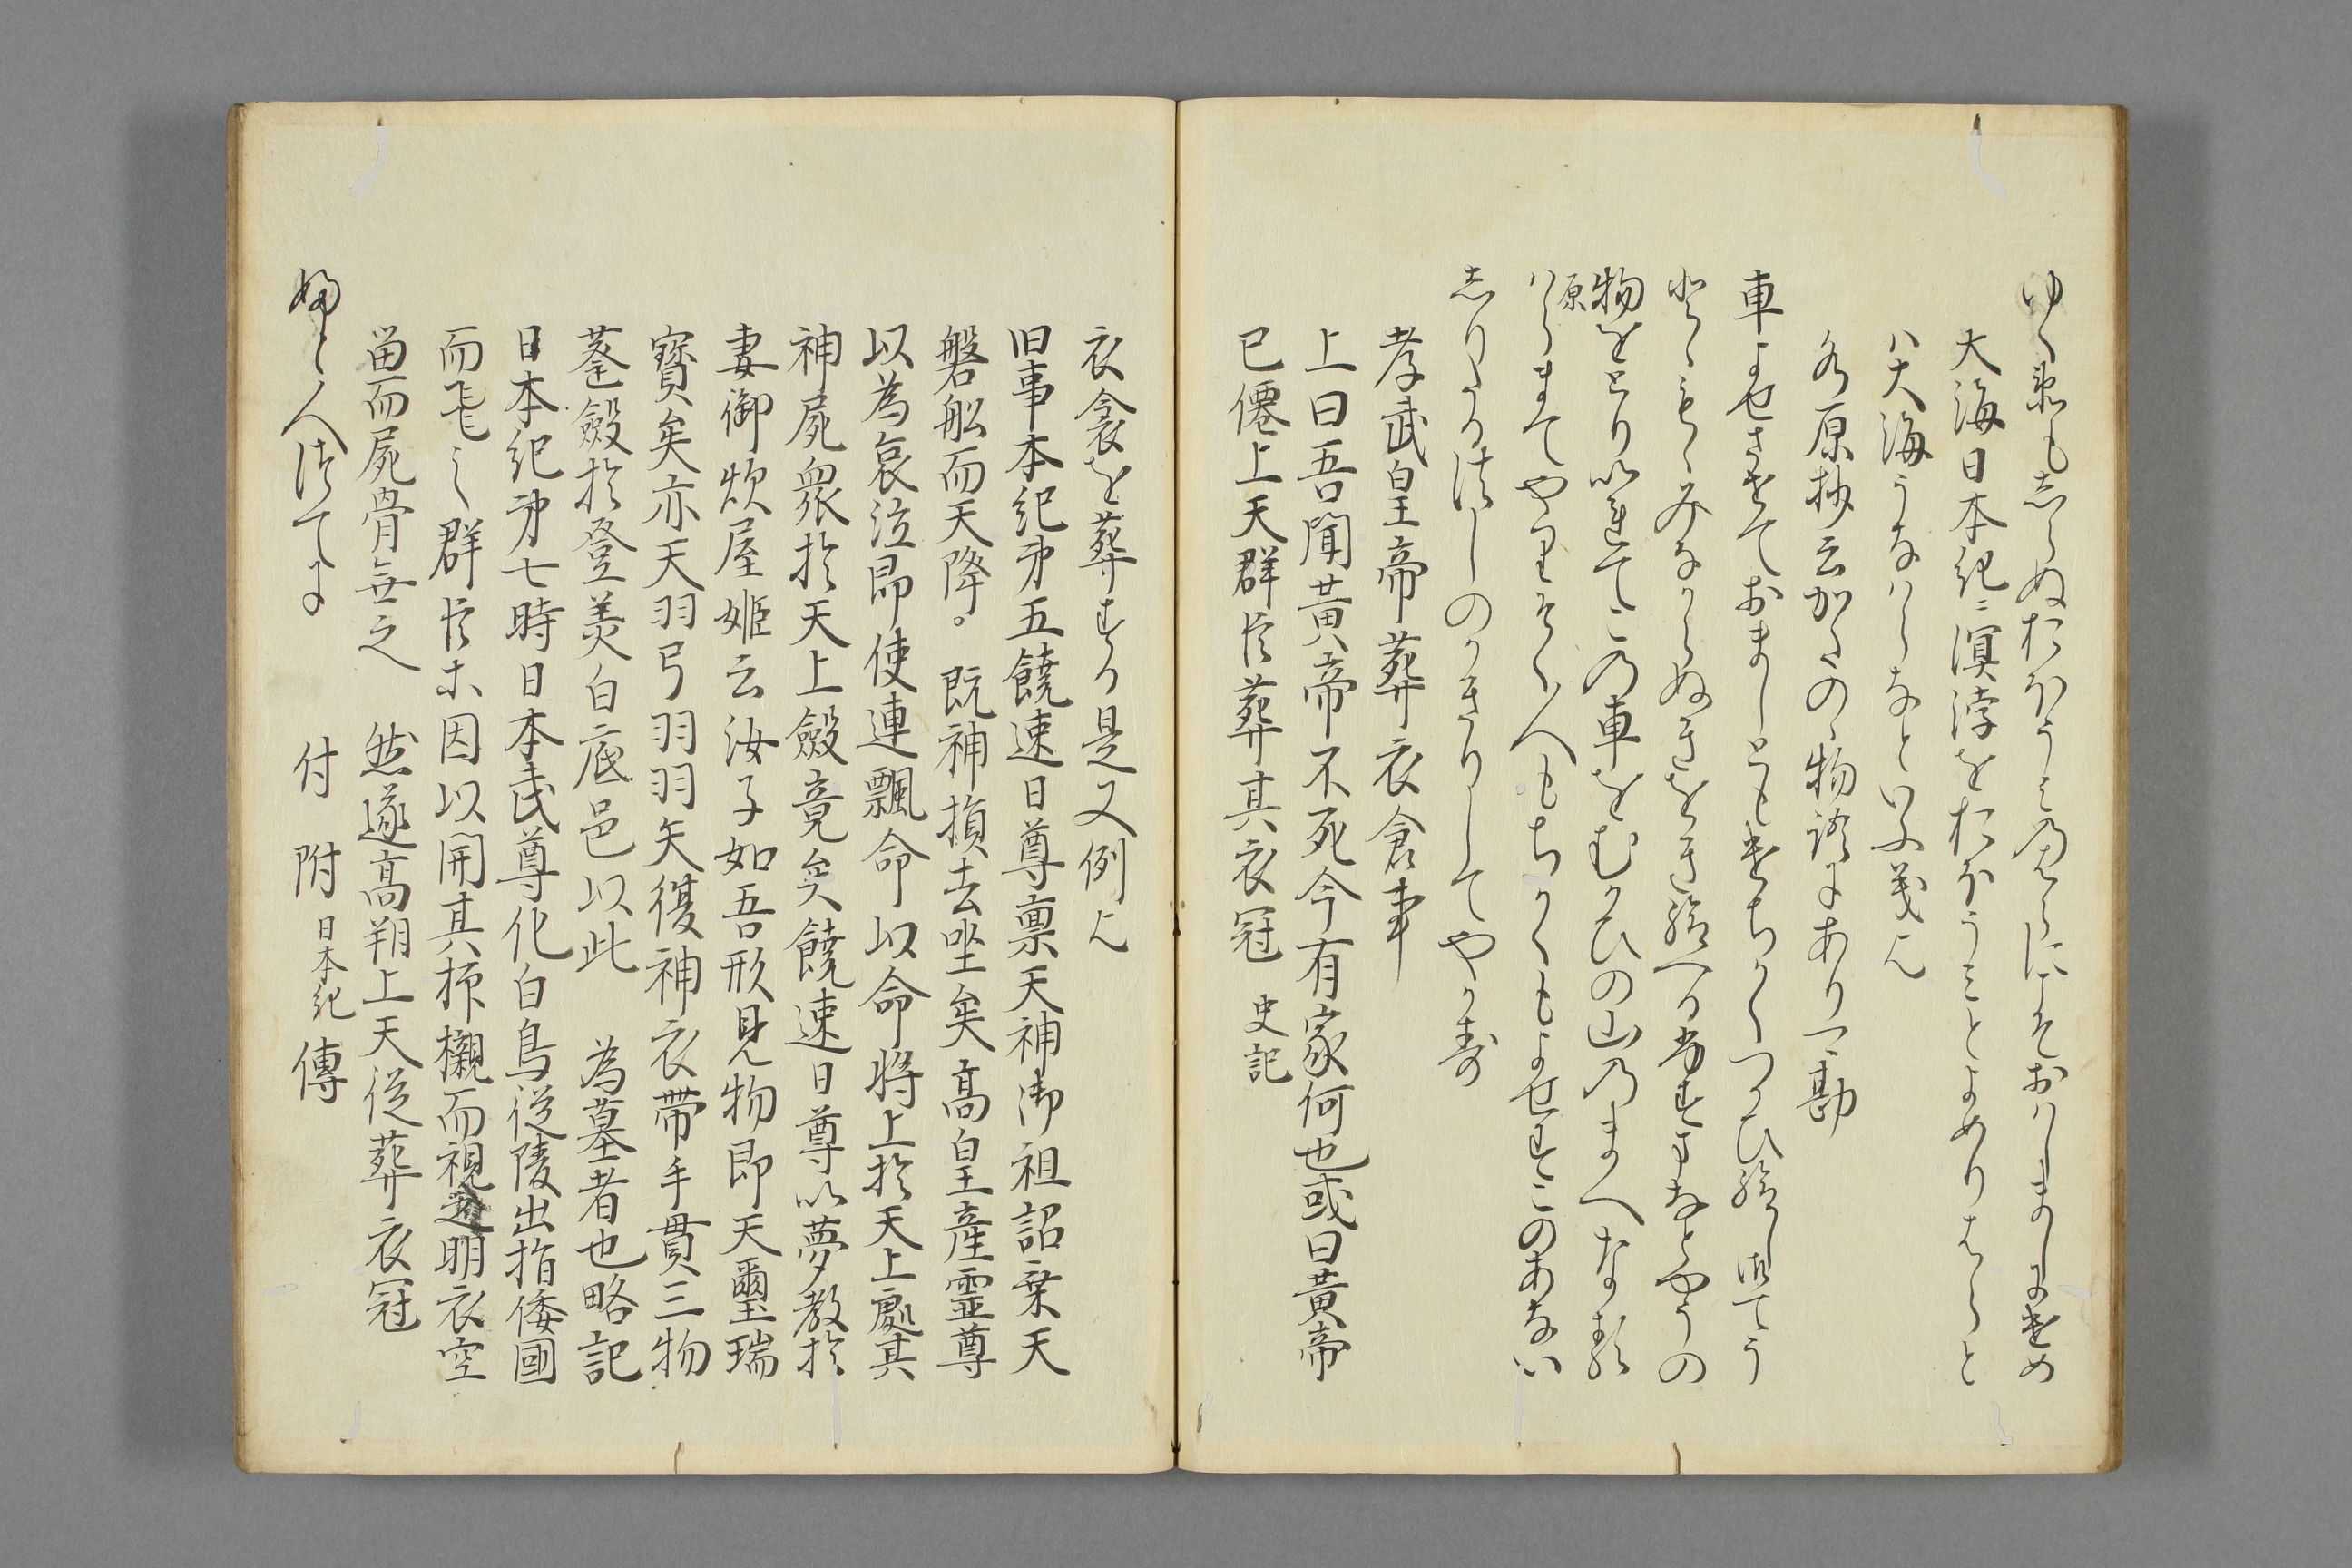 ゆくゑもしらぬおほうみのはらにこそおはしましにけめ
大海日本紀ニ溟渟をおほうみとよめりはらと
ハ大海うなハらなといふ義也
水原抄云かたのゝ物語にありツ勘
車よせさせておましともけちかくつかひ給し御てう
とゝもみなからぬきをき給へる御すまなとやうの
物をとりいれてこの車をむかひの山のまへなる
原
ハらまてやりてそ人もちかくもよせすこのあない
しりたる法しのかきりしてやかす
孝武皇帝葬衣倉事
上曰吾聞黄帝不死今有家何也或曰黄帝
已僊上天群臣葬其衣冠 史記
衣衾を葬する是又例也
旧事本紀第五饒速日尊禀天神御祖詔乗天
磐船而天降。既神損去坐矣高皇産霊尊
以為哀泣即使速飄命以命将上於天上處其
神屍衆於天上斂竟矣饒速日尊以夢教於
妻御炊屋姫云汝子如吾形見物即天璽瑞
寳矣亦天羽弓羽羽矢復神衣帯手貫三物
葬斂於登美白庭邑以此 為墓者也略記
日本紀第七時日本武尊化白鳥従陵出指倭國
而飛之群臣等因以開其棺櫬而視之明衣空
留而屍骨無之 然遂高翔上天従葬衣冠
ゆく人つてに 付 附日本紀 傳